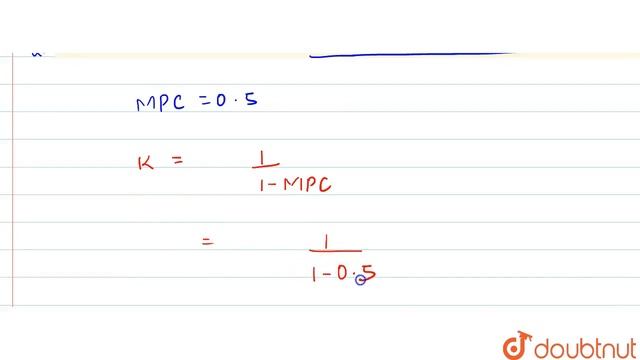 MPC = 0.5
K = 1
1 - MPC
= 1
1 - 0.5
doubtnut